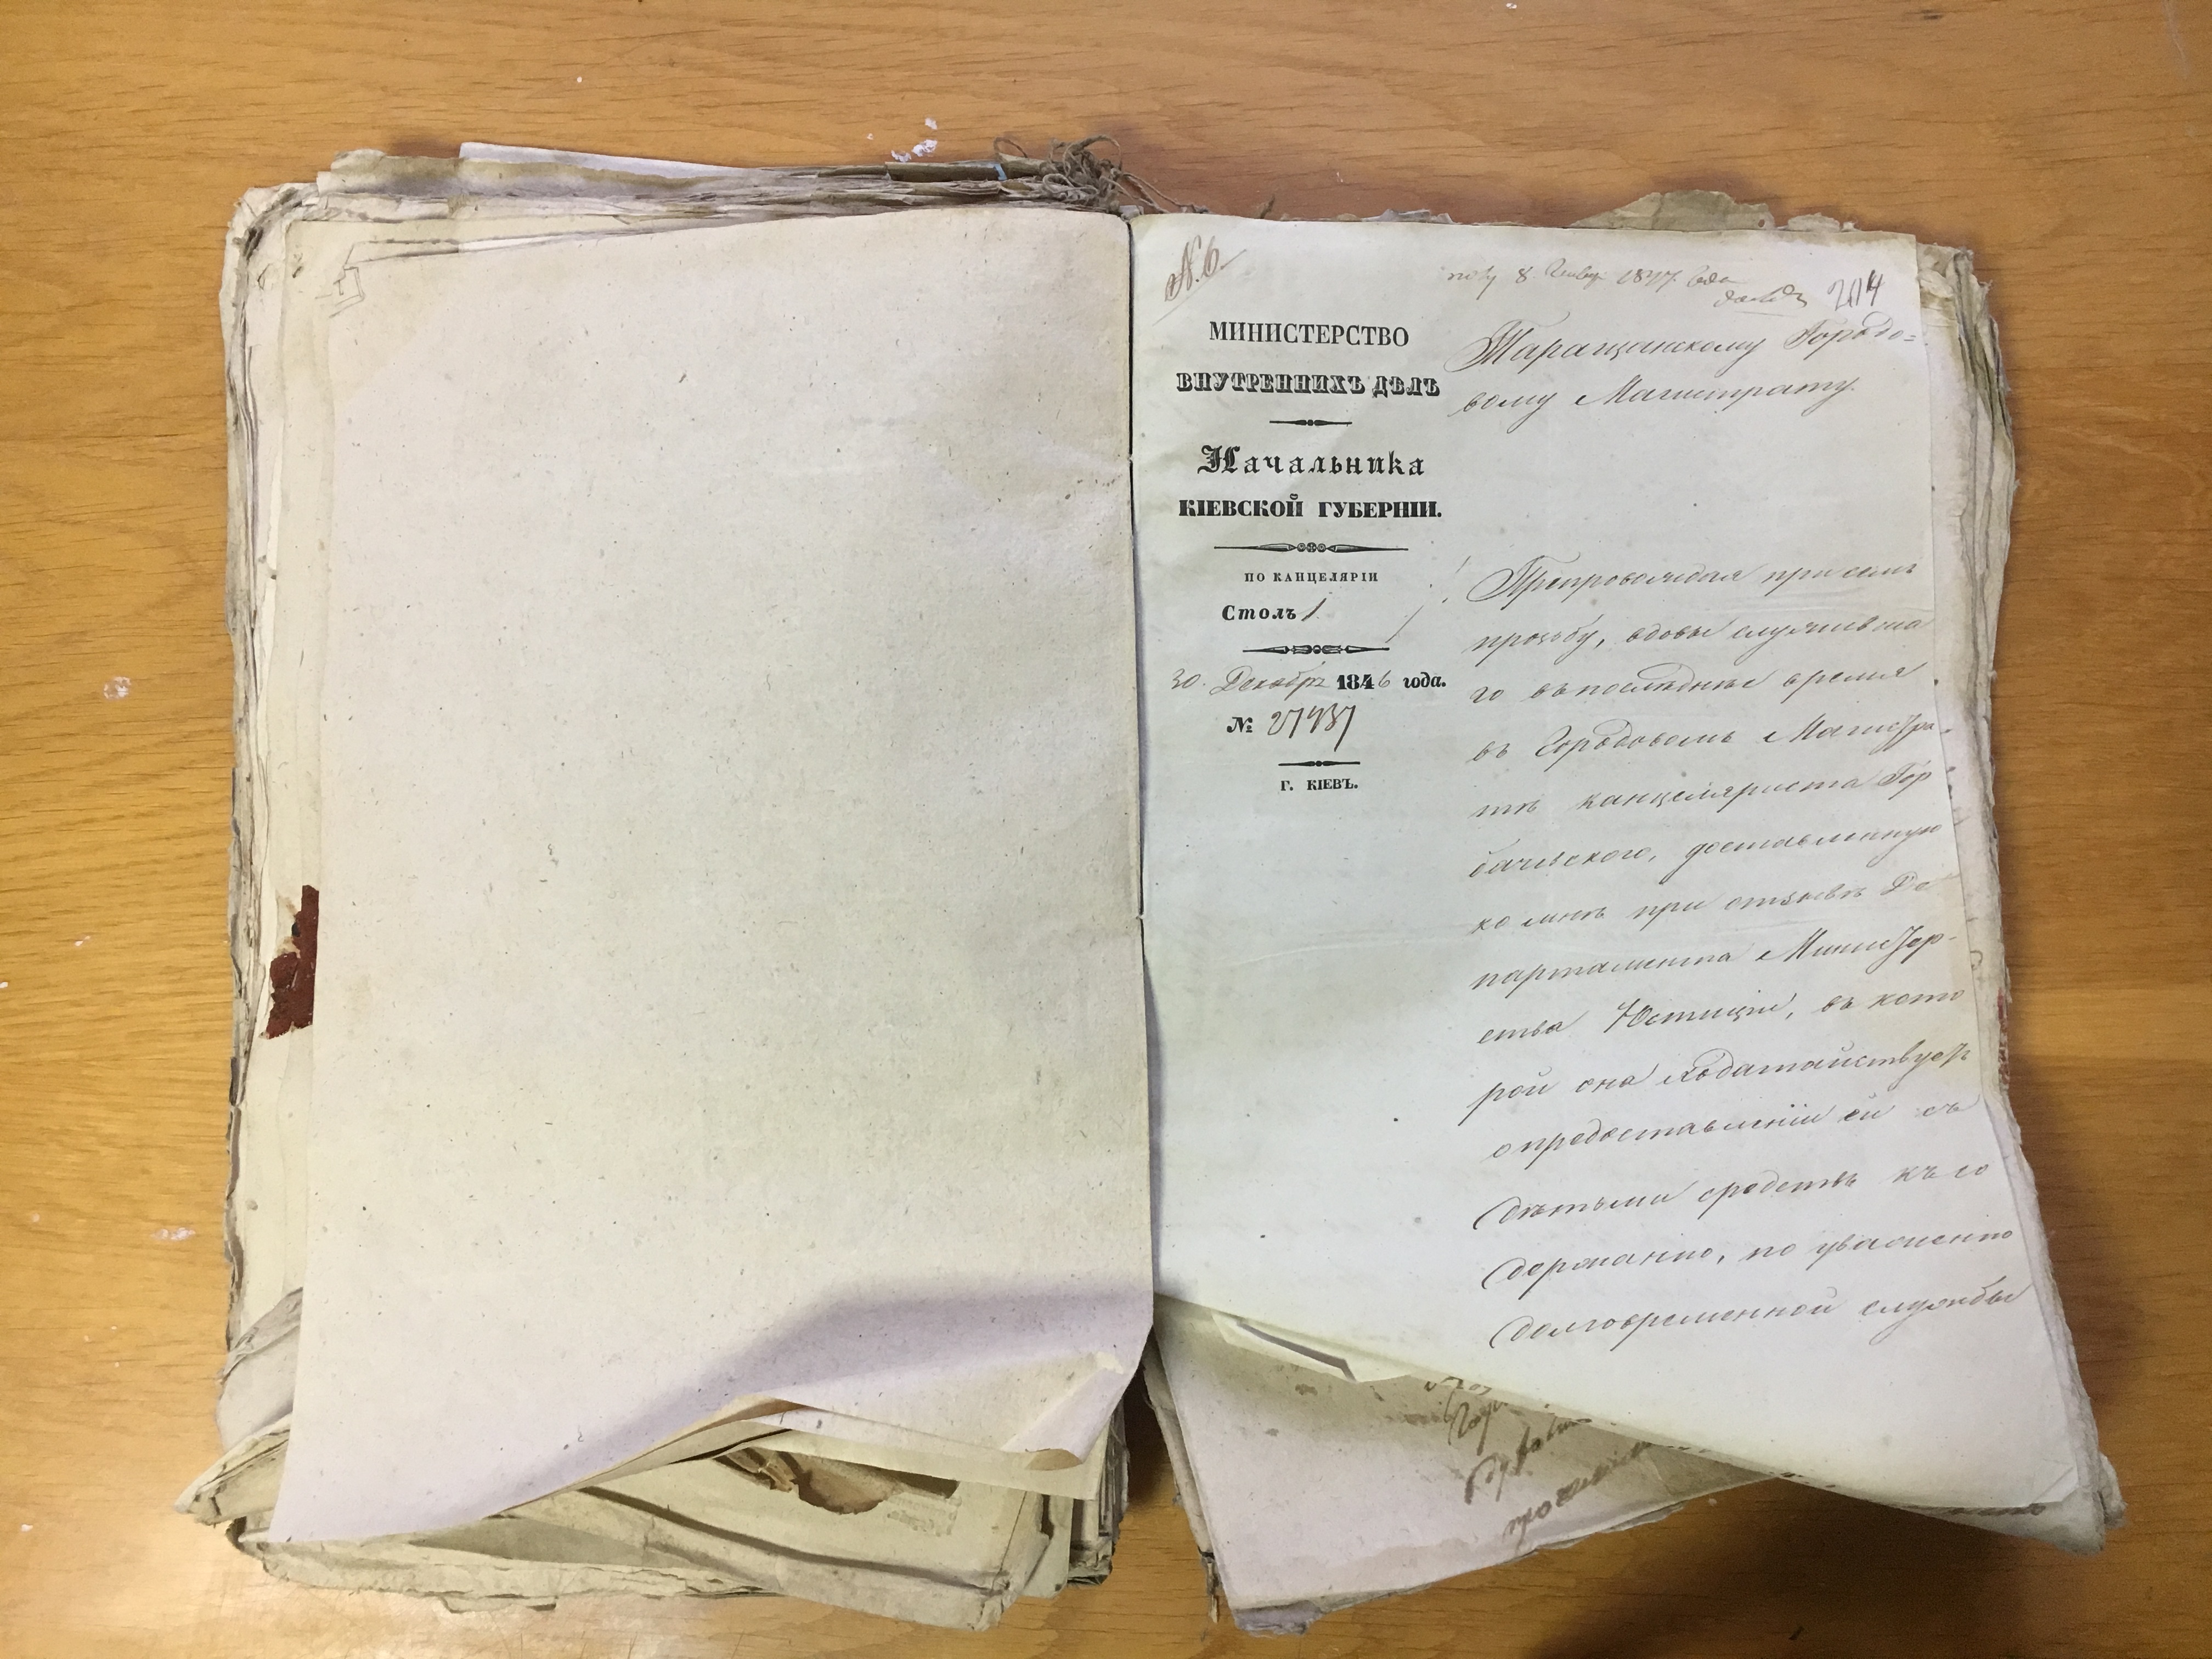 N. 6
8. Генвар 1847. года
204
МИНИСТЕРСТВО
ВНУТРЕННИХЪ ДѢЛЪ
Начальника
КІЕВСКОЙ ГУБЕРНІИ.
ПО КАНЦЕЛЯРІИ
Столъ 1
30. Декабр 1846 года.
№ 27937
Г. КІЕВЪ.
Таращанскому Городо=
вому Магистрату.
Препровождая при семъ
прозьбу, вдовы служивша
го въ последнее время
въ Городовомъ Магистра-
тѣ канцеляриста Гор
бачевского, доставленную
ко мнѣ при отзывѣ Де
партамента Министер-
ства Юстиціи, въ кото
рой она ходатайствуетъ
о предоставленіи ей съ
дѣтьми средствъ къ со
держанію, по уваженію
долговременной службы